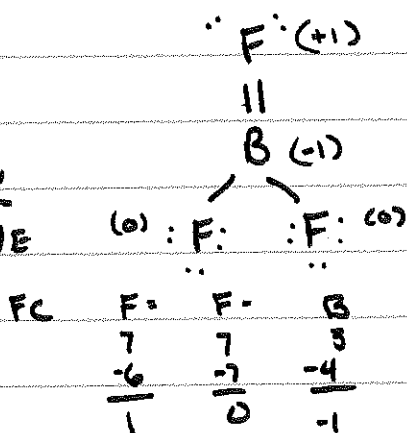 F (+1)
B (-1)
(0) :F: :F: (0)
E
FC F= F- B
7 7 3
-6 -7 -4
1 0 -1